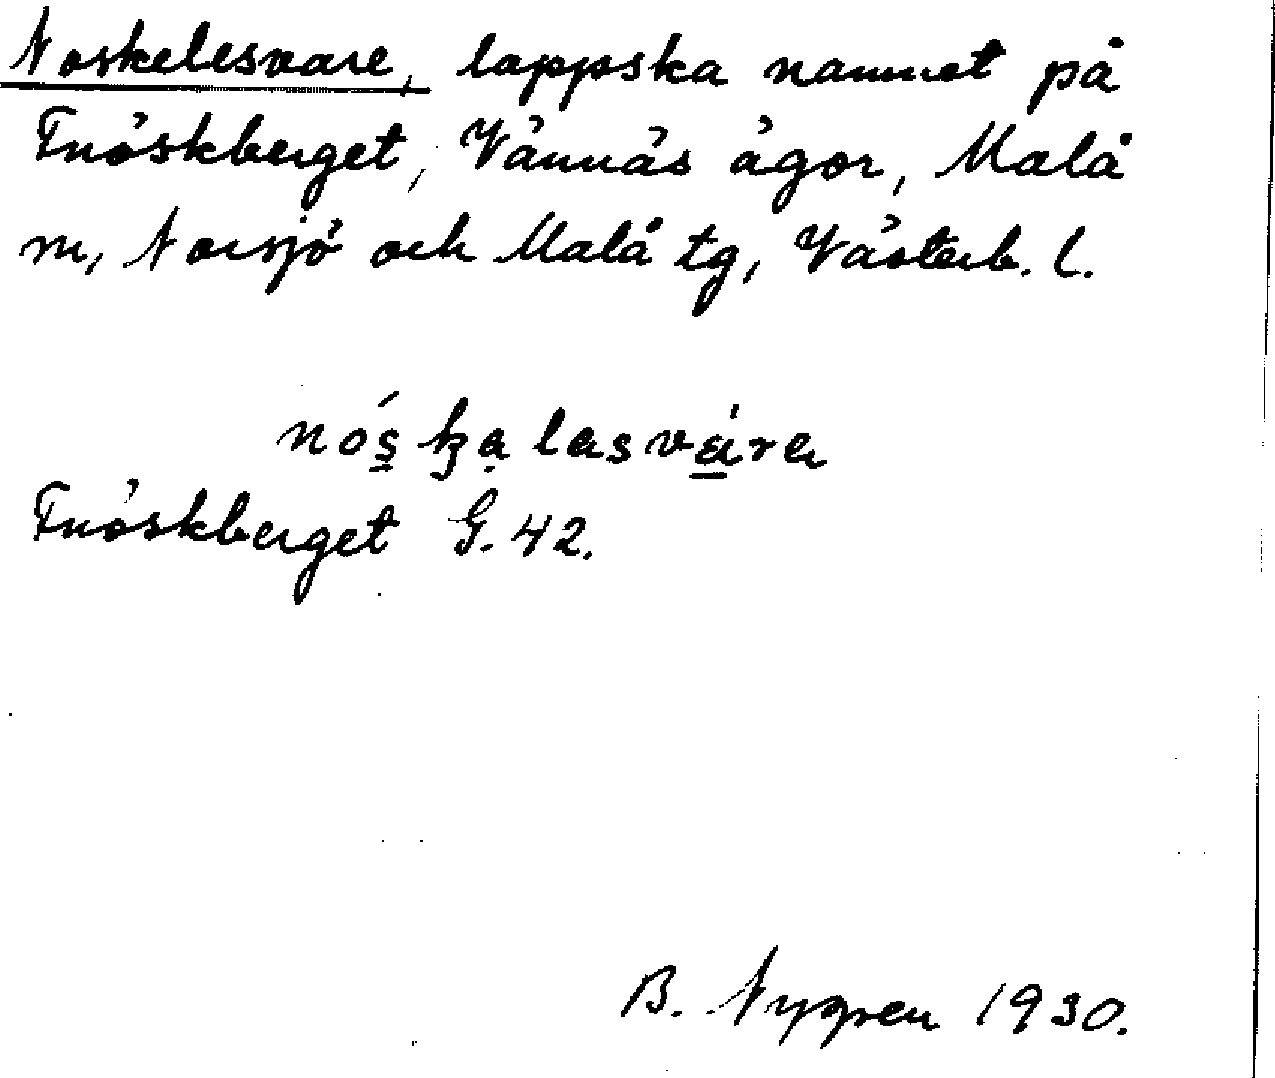 Noskelesvare, lappska namnet på
Fnöskberget, Vännäs ägor, Malå
m, Norsjö och Malå tg, Västerb. l.
nóska lasvára
Fnöskberget G. 42.
B. Nygren 1930.